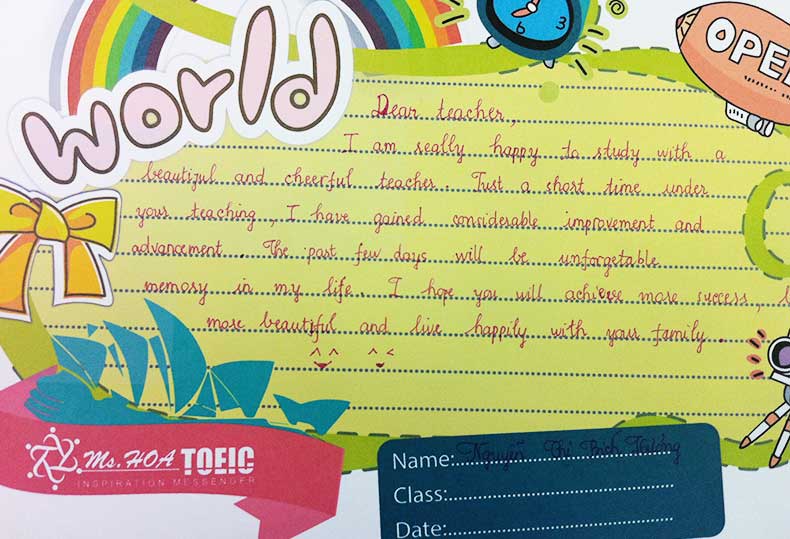 world
OPE
3
6
Dear teacher,
I am really happy to study with a
beautiful and cheerful teacher. Just a short time under
your teaching, I have gained considerable improvement and
advancement. The past few days will be unforgetable
memory in my life. I hope you will achieve more success,
more beautiful and live happily with your family.
Ms. HOA TOEIC
INSPIRATION MESSENGER
Name: Nguyễn Thị Bích
Class:
Date: